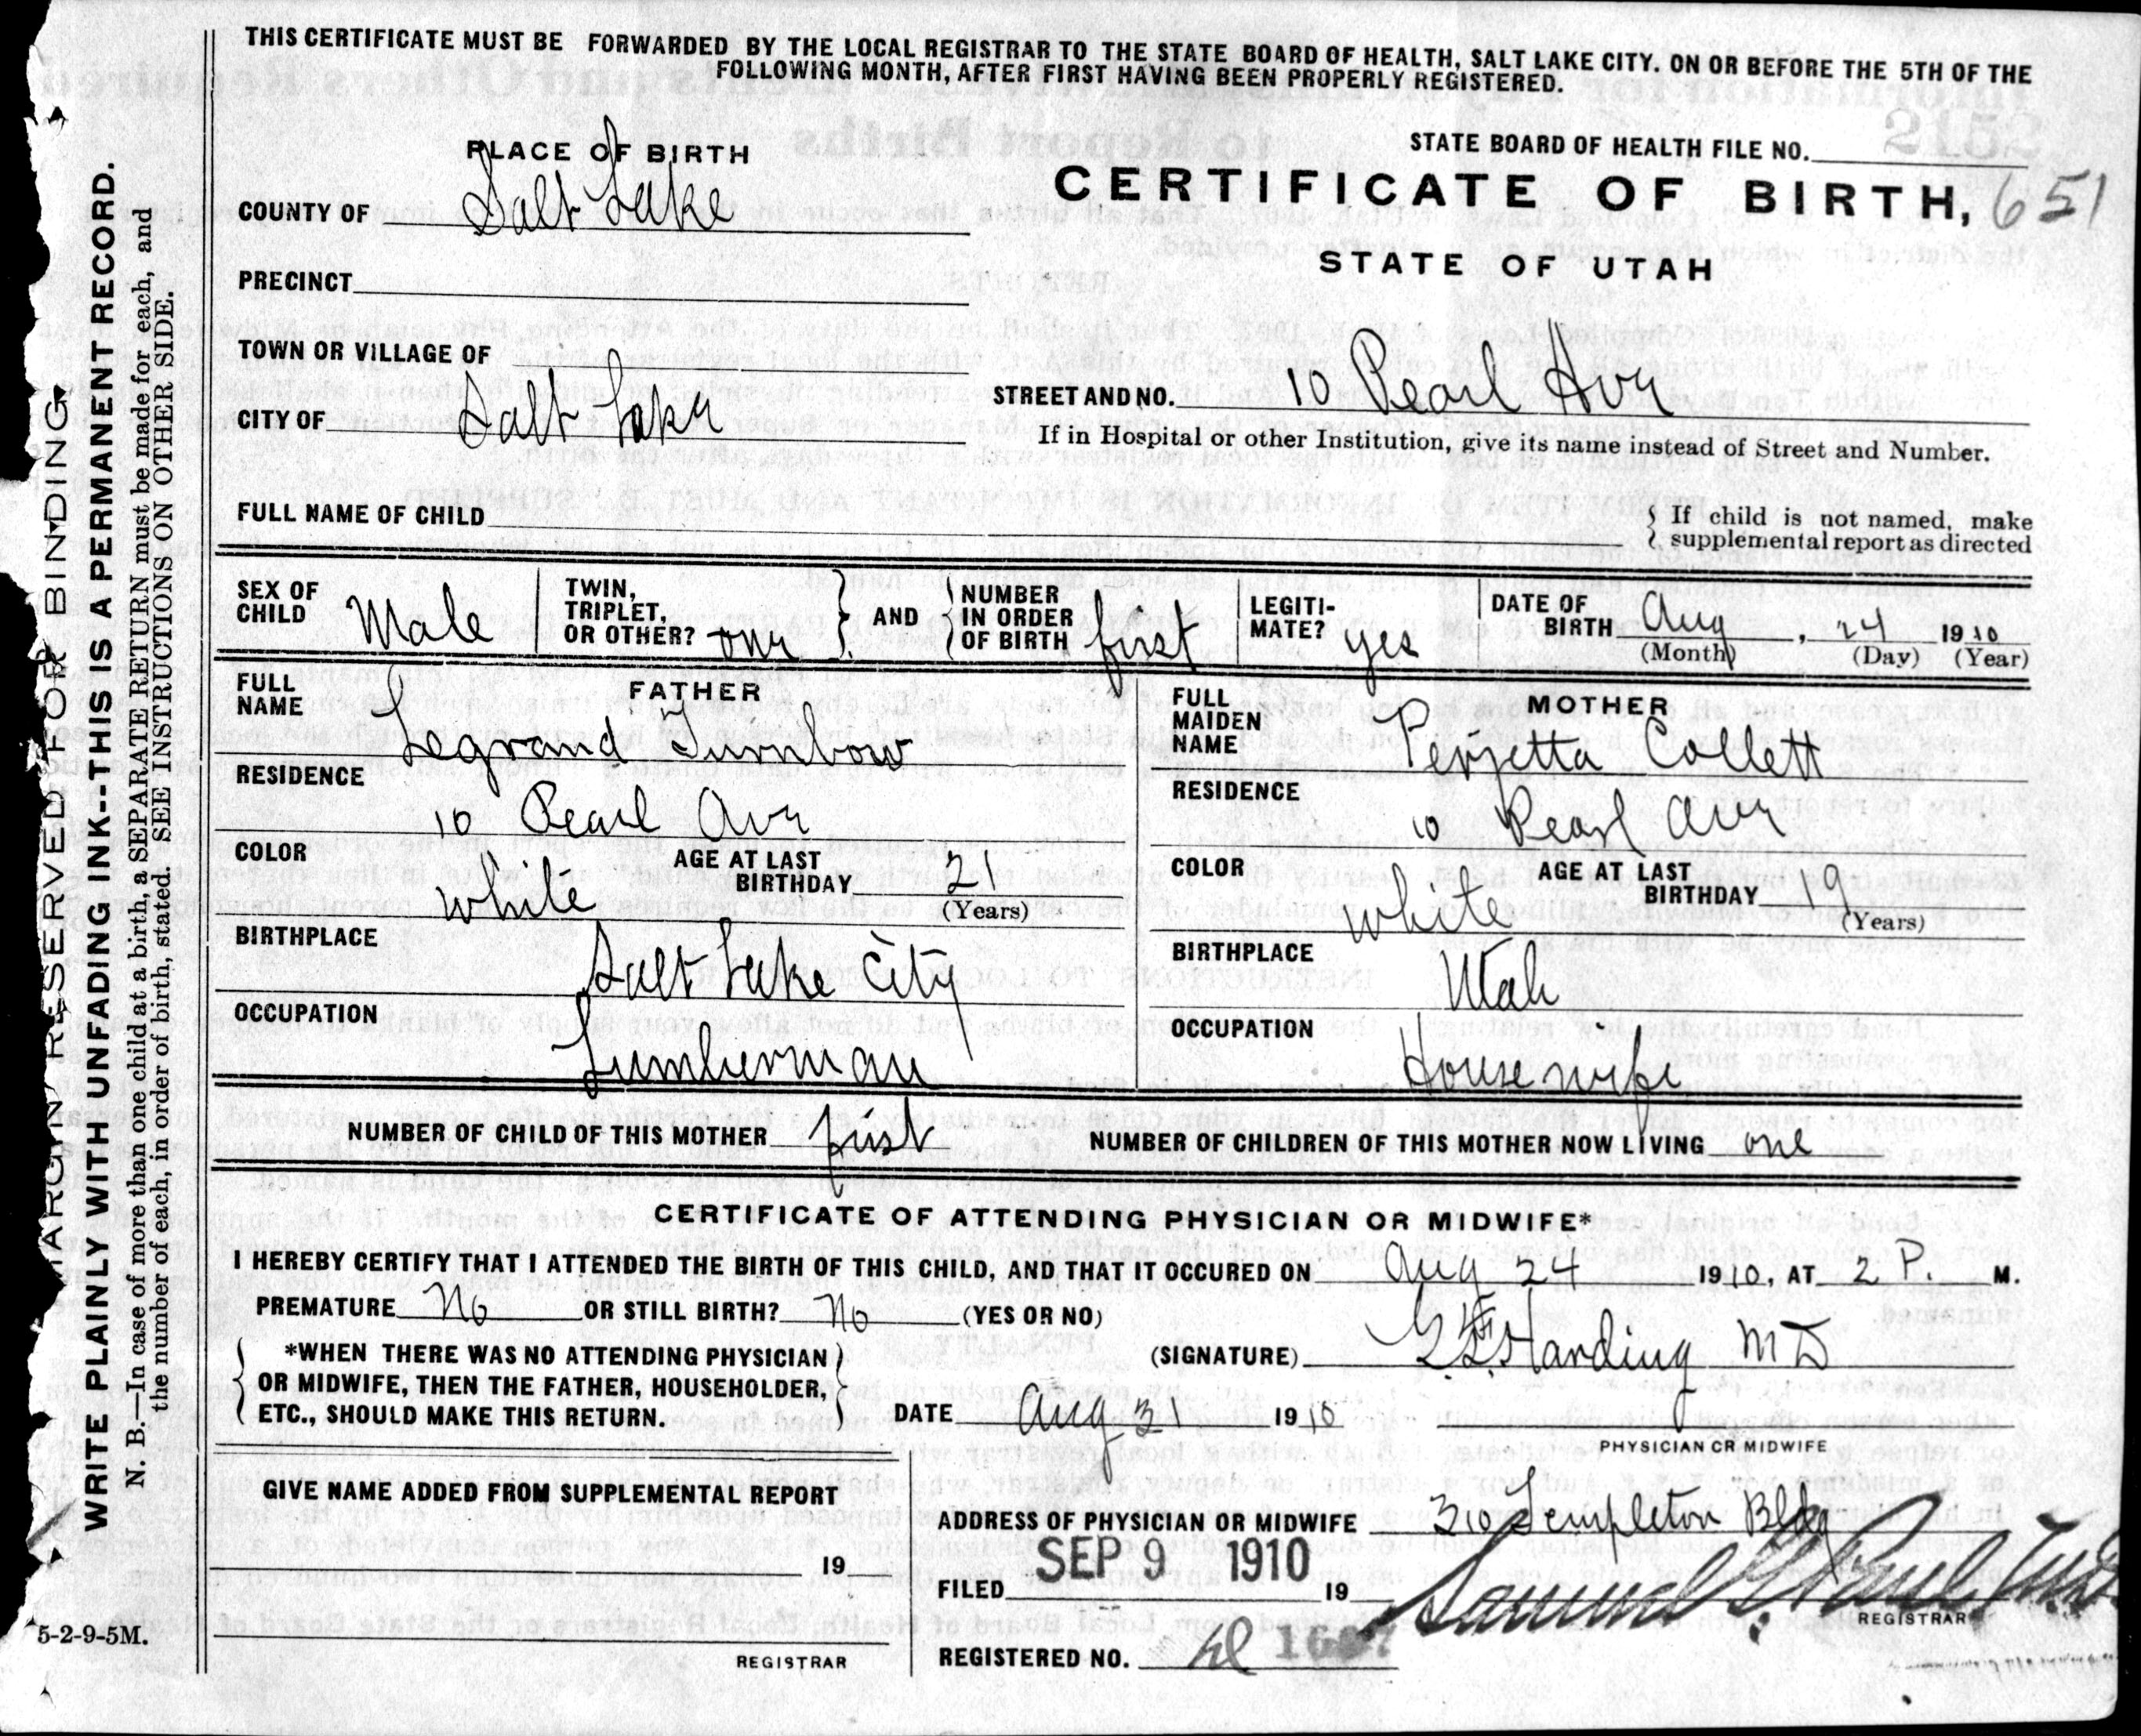 THIS CERTIFICATE MUST BE FORWARDED BY THE LOCAL REGISTRAR TO THE STATE BOARD OF HEALTH, SALT LAKE CITY. ON OR BEFORE THE 5TH OF THE
FOLLOWING MONTH, AFTER FIRST HAVING BEEN PROPERLY REGISTERED.
MARGIN RESERVED FOR BINDING
WRITE PLAINLY WITH UNFADING INK--THIS IS A PERMANENT RECORD.
N. B.—In case of more than one child at a birth, a SEPARATE RETURN must be made for each, and
the number of each, in order of birth, stated. SEE INSTRUCTIONS ON OTHER SIDE.
PLACE OF BIRTH
STATE BOARD OF HEALTH FILE NO.
COUNTY OF Salt Lake
CERTIFICATE OF BIRTH, 651
STATE OF UTAH
PRECINCT
TOWN OR VILLAGE OF
CITY OF Salt Lake
STREET AND NO. 10 Pearl Ave
If in Hospital or other Institution, give its name instead of Street and Number.
FULL NAME OF CHILD
{ If child is not named, make
supplemental report as directed
SEX OF CHILD Male
TWIN, TRIPLET, OR OTHER? one } AND { NUMBER IN ORDER OF BIRTH first
LEGITI-MATE? yes
DATE OF BIRTH Aug, 24 1910
(Month) (Day) (Year)
FATHER
FULL NAME Legrand Turnbow
RESIDENCE
10 Pearl Ave
COLOR White
AGE AT LAST BIRTHDAY 21
(Years)
BIRTHPLACE
Salt Lake City
OCCUPATION
Lumberman
MOTHER
FULL MAIDEN NAME Perzetta Collett
RESIDENCE
10 Pearl Ave
COLOR White
AGE AT LAST BIRTHDAY 19
(Years)
BIRTHPLACE
Utah
OCCUPATION
Housewife
NUMBER OF CHILD OF THIS MOTHER first NUMBER OF CHILDREN OF THIS MOTHER NOW LIVING one
CERTIFICATE OF ATTENDING PHYSICIAN OR MIDWIFE*
I HEREBY CERTIFY THAT I ATTENDED THE BIRTH OF THIS CHILD, AND THAT IT OCCURED ON Aug 24 1910, AT 2 P. M.
PREMATURE No OR STILL BIRTH? No (YES OR NO)
{ *WHEN THERE WAS NO ATTENDING PHYSICIAN }
OR MIDWIFE, THEN THE FATHER, HOUSEHOLDER,
ETC., SHOULD MAKE THIS RETURN.
(SIGNATURE) Harding MD
DATE Aug 31 1910
PHYSICIAN OR MIDWIFE
GIVE NAME ADDED FROM SUPPLEMENTAL REPORT
19
REGISTRAR
ADDRESS OF PHYSICIAN OR MIDWIFE 310 Templeton Bldg
FILED SEP 9 1910 19
Samuel G. Paul
REGISTRAR
REGISTERED NO.
5-2-9-5M.